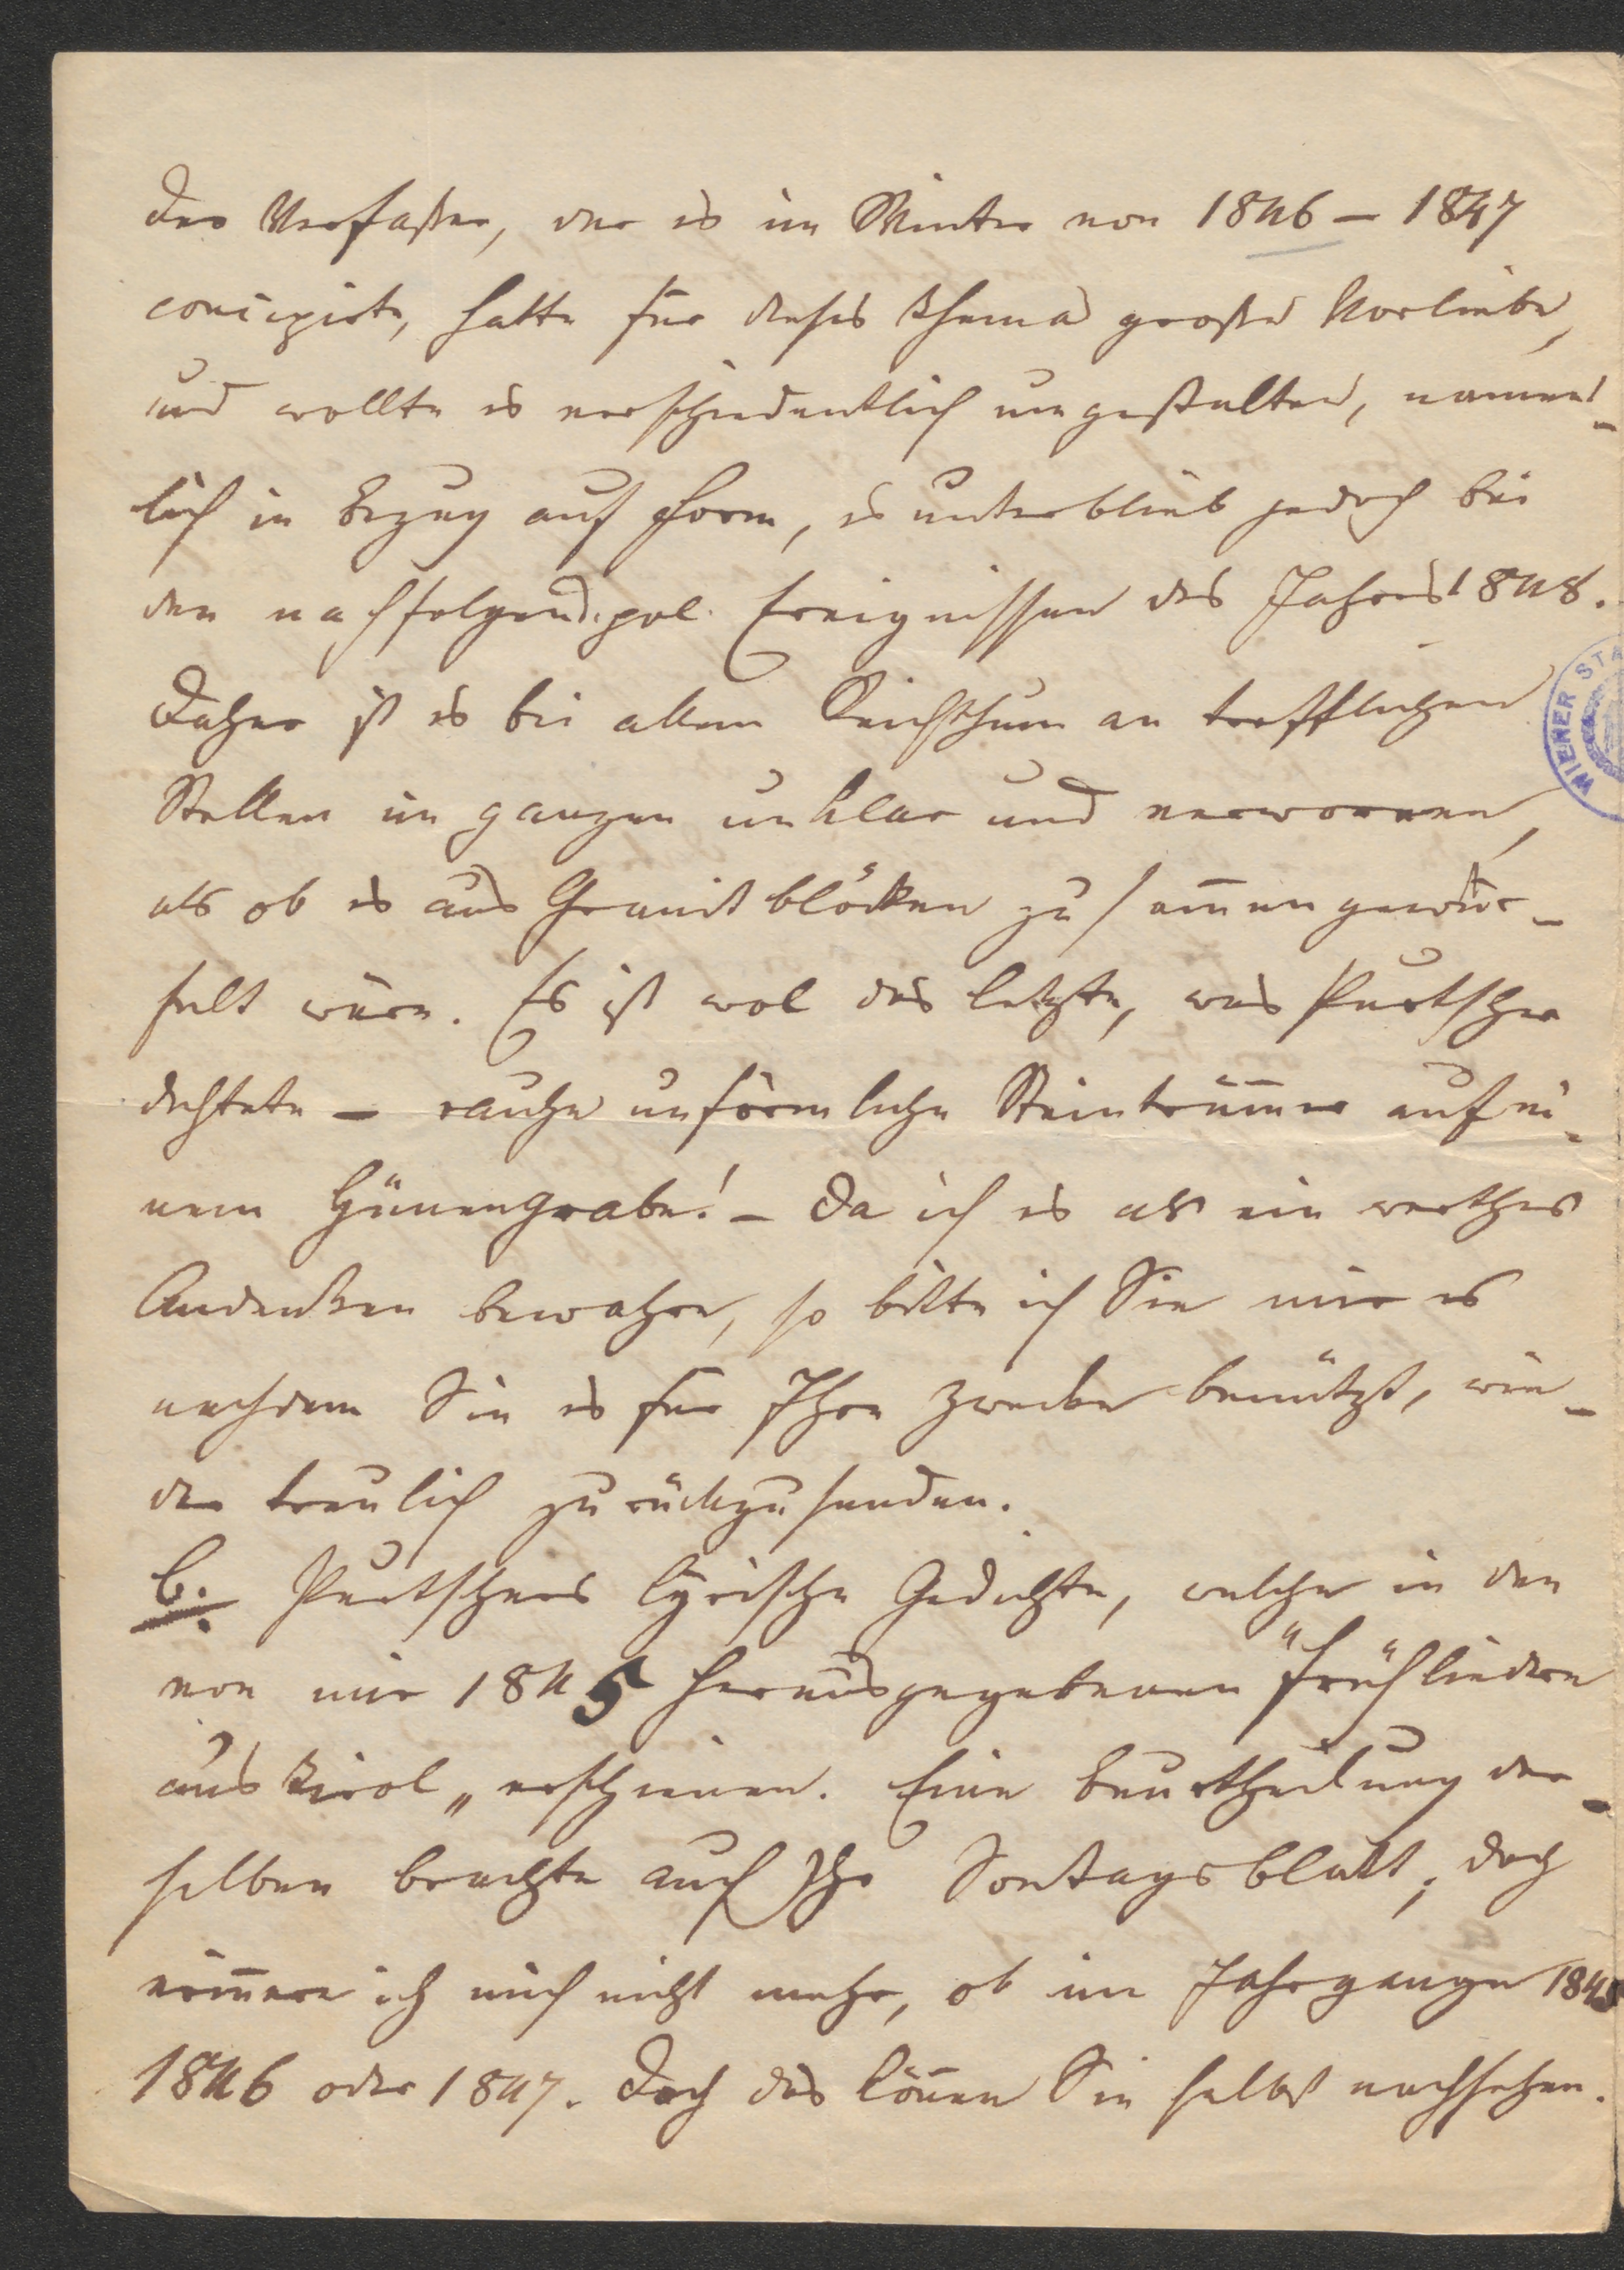 Der Verfaßer, der es im Winter von 1846 – 1847
concipirte, hatte für dieses Thema große Vorliebe,
und wollte es verschiedentlich umgestalten, nament-
lich in Bezug auf Form, es unterblieb jedoch bei
den nachfolgend. pol. Ereignissen des Jahres 1848.
Daher ist es bei allem Reichthum an trefflichen
Stellen im ganzen unklar und verworren,
als ob es aus Granitblöcken zusam̅engewür-
felt wäre. Es ist wol das letzte, was Purtscher
dichtete – rauhe unförmliche Steintrüm̅er auf ei-
nem Hünengrabe! – Da ich es als ein werthes
Andenken bewahre, so bitte ich Sie mir es
nachdem Sie es für Ihre Zwecke benützt, wie-
der treulich zurückzusenden.
b. Purtschers lyrische Gedichte, welche in den
von mir 1845 herausgegebenen "Frühliedern
aus Tirol„ erschienen. Eine Beurtheilung der-
selben brachte auch Ihr Son̅tagsblatt; doch
erin̅ere ich mich nicht mehr, ob im Jahrgange 1845
1846 oder 1847. Doch das kön̅en Sie selbst nachsehen.
WIENER STA